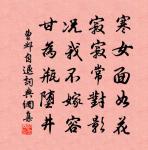 寒女面如花
寂寂常對影
況我不嫁容
甘為瓶墮井
曹鄴自遐詞典網集